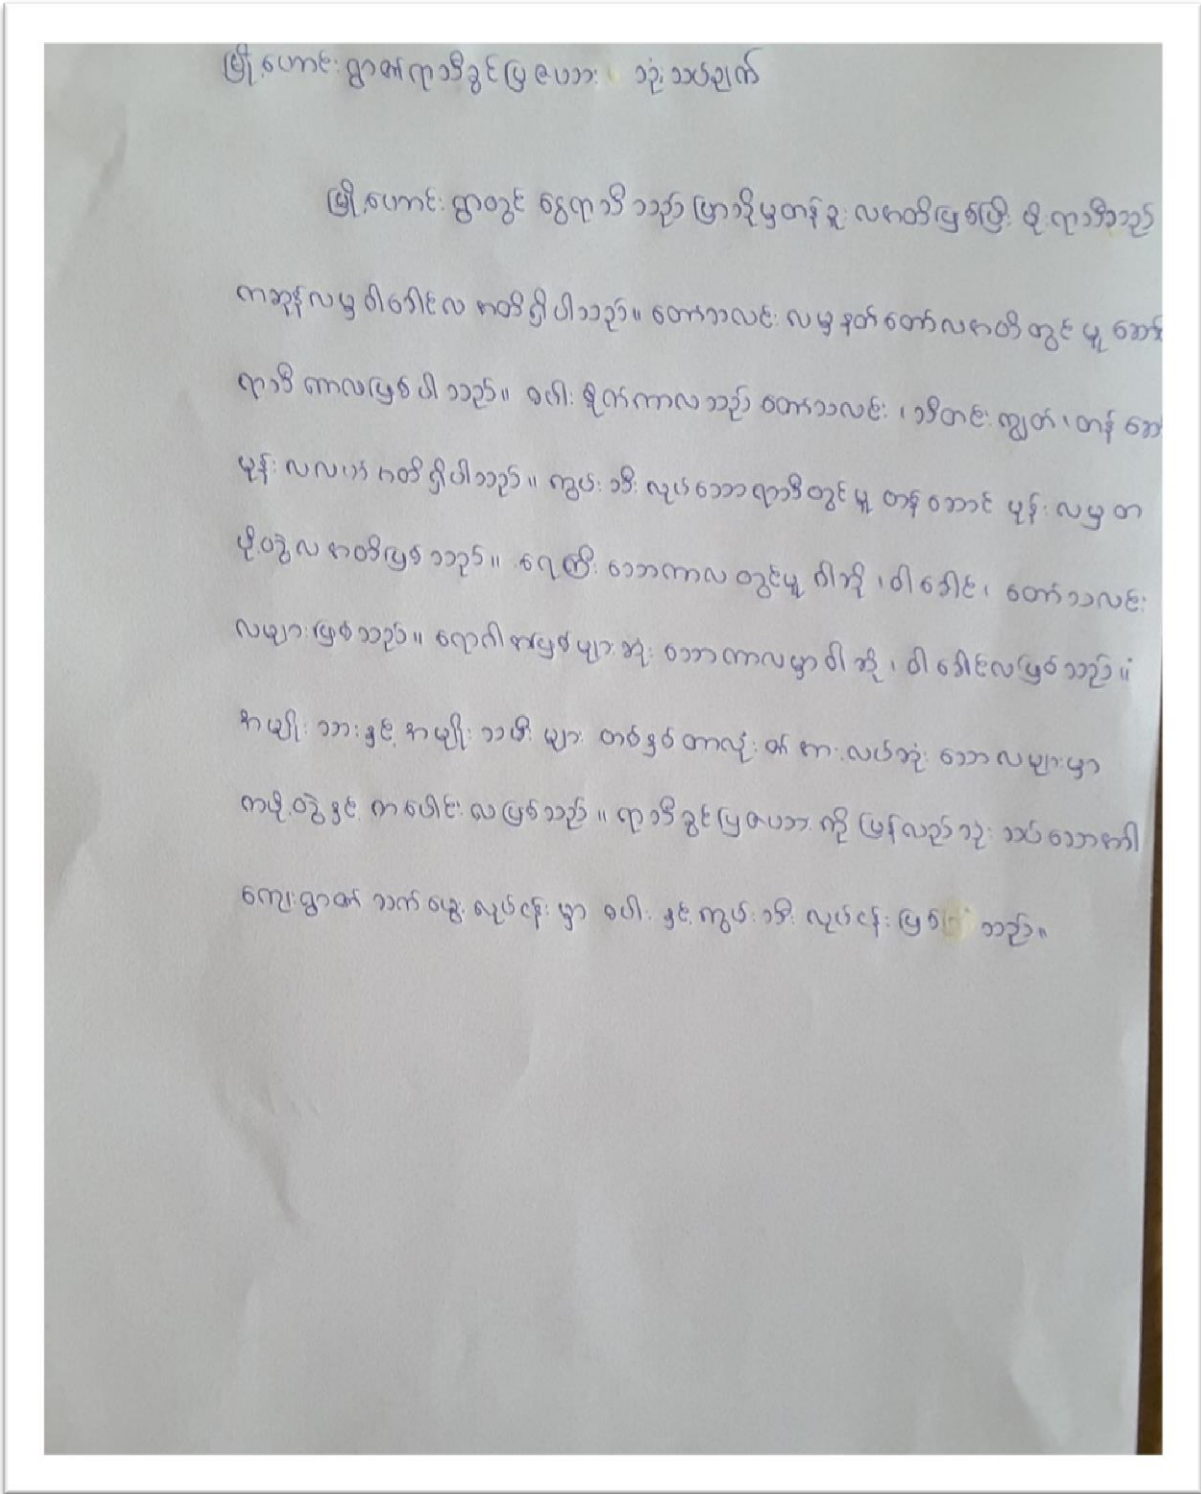 မြို့ဟောင်းရွာ၏ရာသီခွင်ပြဇယား သုံးသပ်ချက်
မြို့ဟောင်းရွာတွင် နွေရာသီသည် ပြာသိုမှတန်ခူးလအထိဖြစ်ပြီး မိုးရာသီသည်
ကဆုန်လမှဝါခေါင်လ အထိရှိပါသည်။ တော်သလင်းလမှနတ်တော်လအထိတွင်မူ ဆောင်း
ရာသီကာလဖြစ်ပါသည်။ စပါးစိုက်ကာလသည် တော်သလင်း၊ သီတင်းကျွတ်၊ တန်ဆောင်
မုန်းလလယ်အထိရှိပါသည်။ ကျွမ်းသီးလုပ်သောရာသီတွင်မူ တန်ဆောင်မုန်းလမှ တ
ပို့တွဲလအထိဖြစ်သည်။ ရေကြီးသောကာလတွင်မူ ဝါဆို၊ ဝါခေါင်၊ တော်သလင်း
လများဖြစ်သည်။ ရောဂါအဖြစ်များဆုံးသောကာလမှာဝါဆို၊ ဝါခေါင်လဖြစ်သည်။
အမျိုးသားနှင့်အမျိုးသမီးများ တစ်နှစ်တာလုံး၏အားလပ်ဆုံးသောလများမှာ
တပို့တွဲနှင့် တပေါင်းလဖြစ်သည်။ ရာသီခွင်ပြဇယားကိုပြန်လည်သုံးသပ်သောအခါ
ကျေးရွာ၏ သက်မွေးလုပ်ငန်းမှာ စပါးနှင့်ကျွမ်းသီးလုပ်ငန်းဖြစ် သည်။